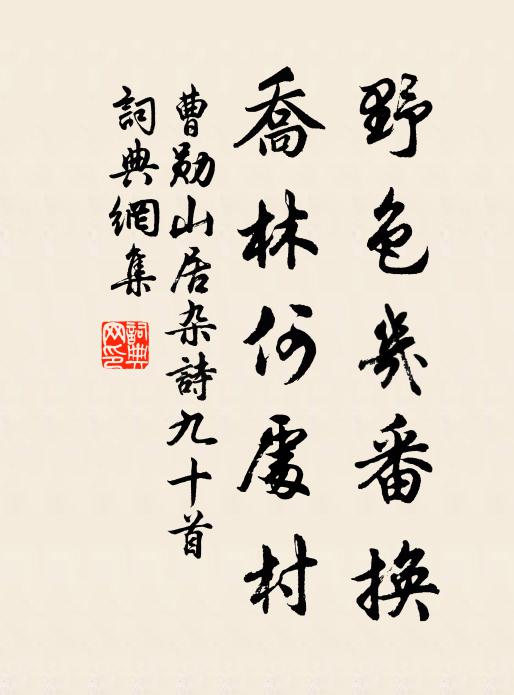 野色幾番換
喬林何處村
曹勛山居杂詩九十首
詞典網集
詞典
网印